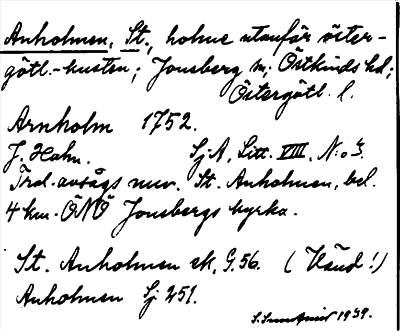 Anholmen, St., holme utanför öster-
götl.-kusten; Jonsberg sn; Östkinds hd;
Östergötl. l.
Arnholm 1752.
J. Hahn. SjA, Litt. VIII, N:o 3.
Trol. avsågs nuv. St. Anholmen, bel.
4 km. ÖNÖ Jonsbergs kyrka.
St. Anholmen ek. G. 56. (Känd!)
Anholmen Sj 251.
1939.